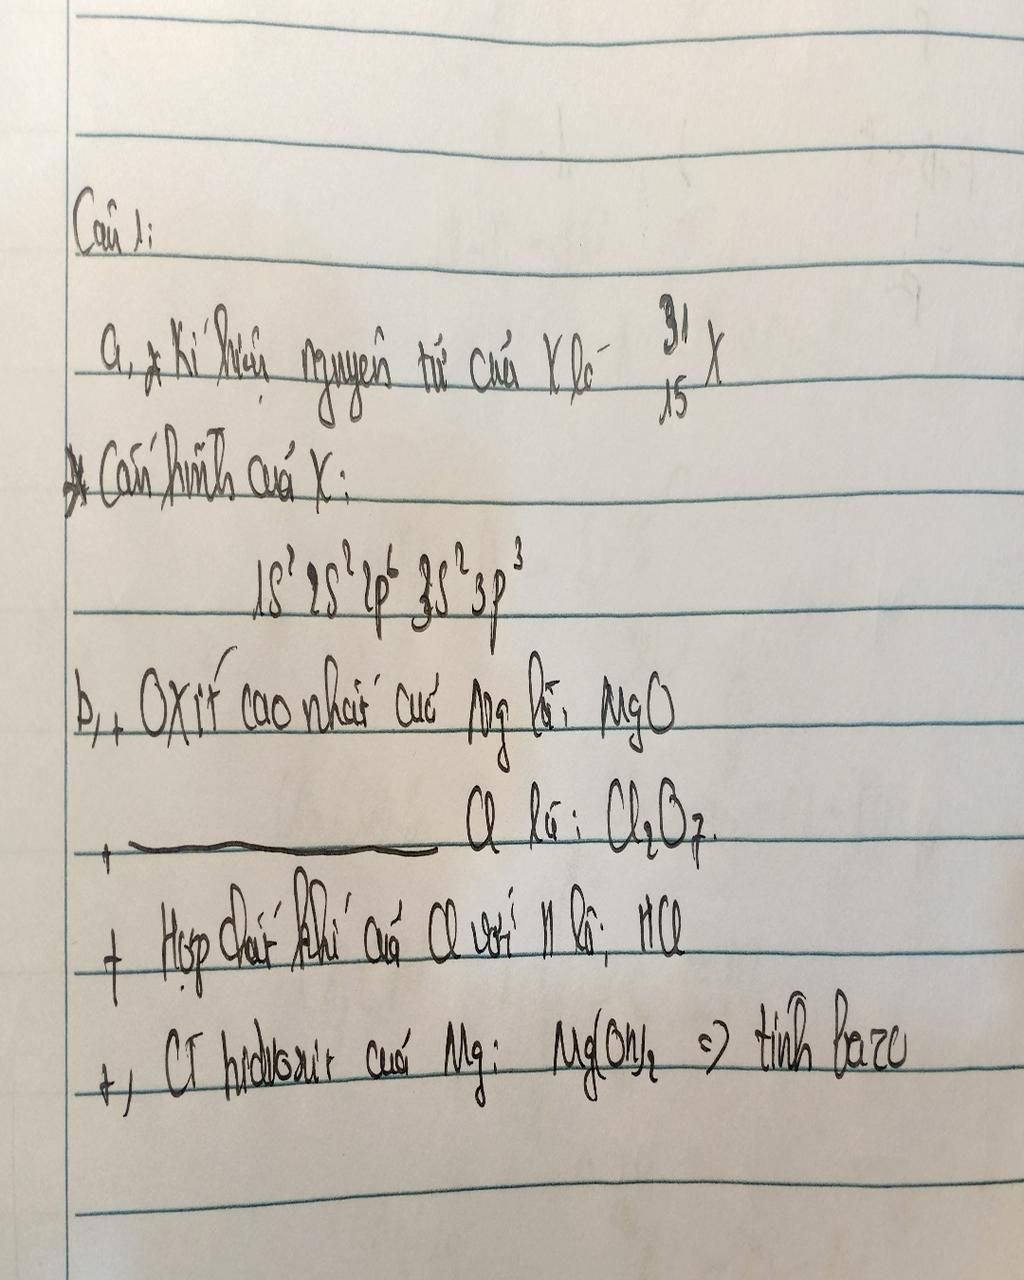 Câu 1:
a, * Kí hiệu nguyên tử của X là ³¹₁₅X
* Cấu hình của X:
1s² 2s² 2p⁶ 3s² 3p³
b, + Oxit cao nhất của Mg là: MgO
+ ———— Cl là: Cl₂O₇.
+ Hợp chất khí của Cl với H là: HCl
+, CT hidroxit của Mg: Mg(OH)₂ => tính bazo